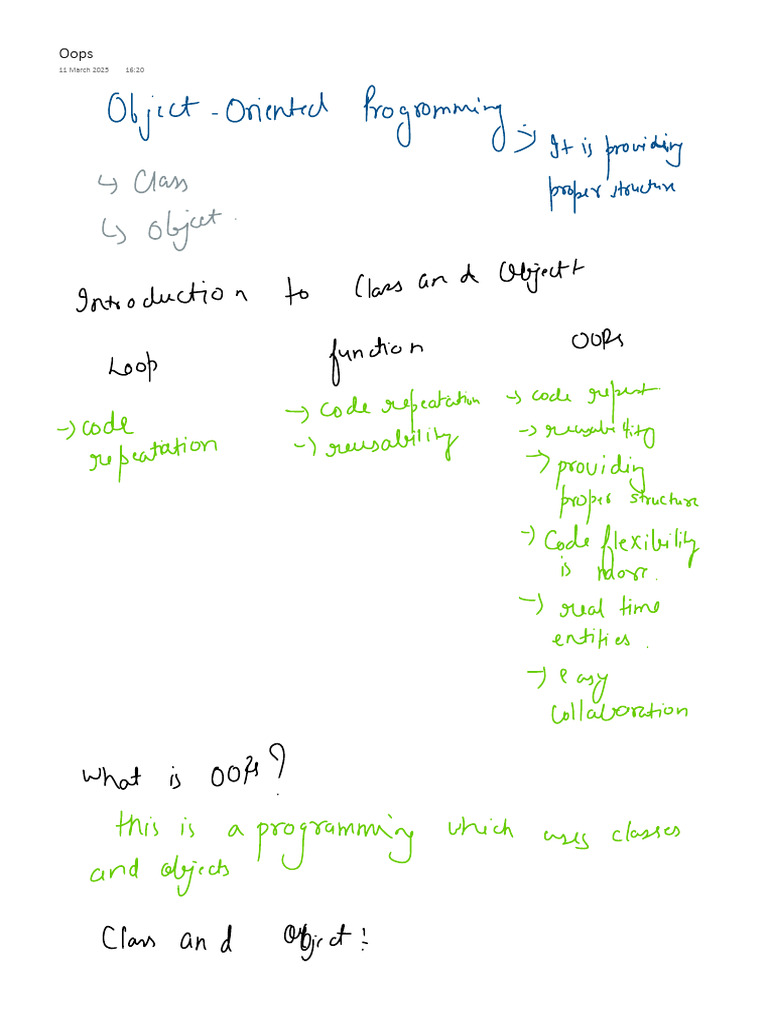 Oops
11 March 2025 16:20
Object-Oriented Programming
⇒ It is providing
proper structure
↳ Class
↳ Object.
Introduction to Class and Object
Loop
→ code
repeatation
function
→ code repeatation
→ reusability
OOPs
→ code repeat
→ reusability
→ providing
proper structure
→ Code flexibility
is more.
→ real time
entities.
→ easy
collaboration
What is OOPs?
this is a programming which uses classes
and objects
Class and Object :-